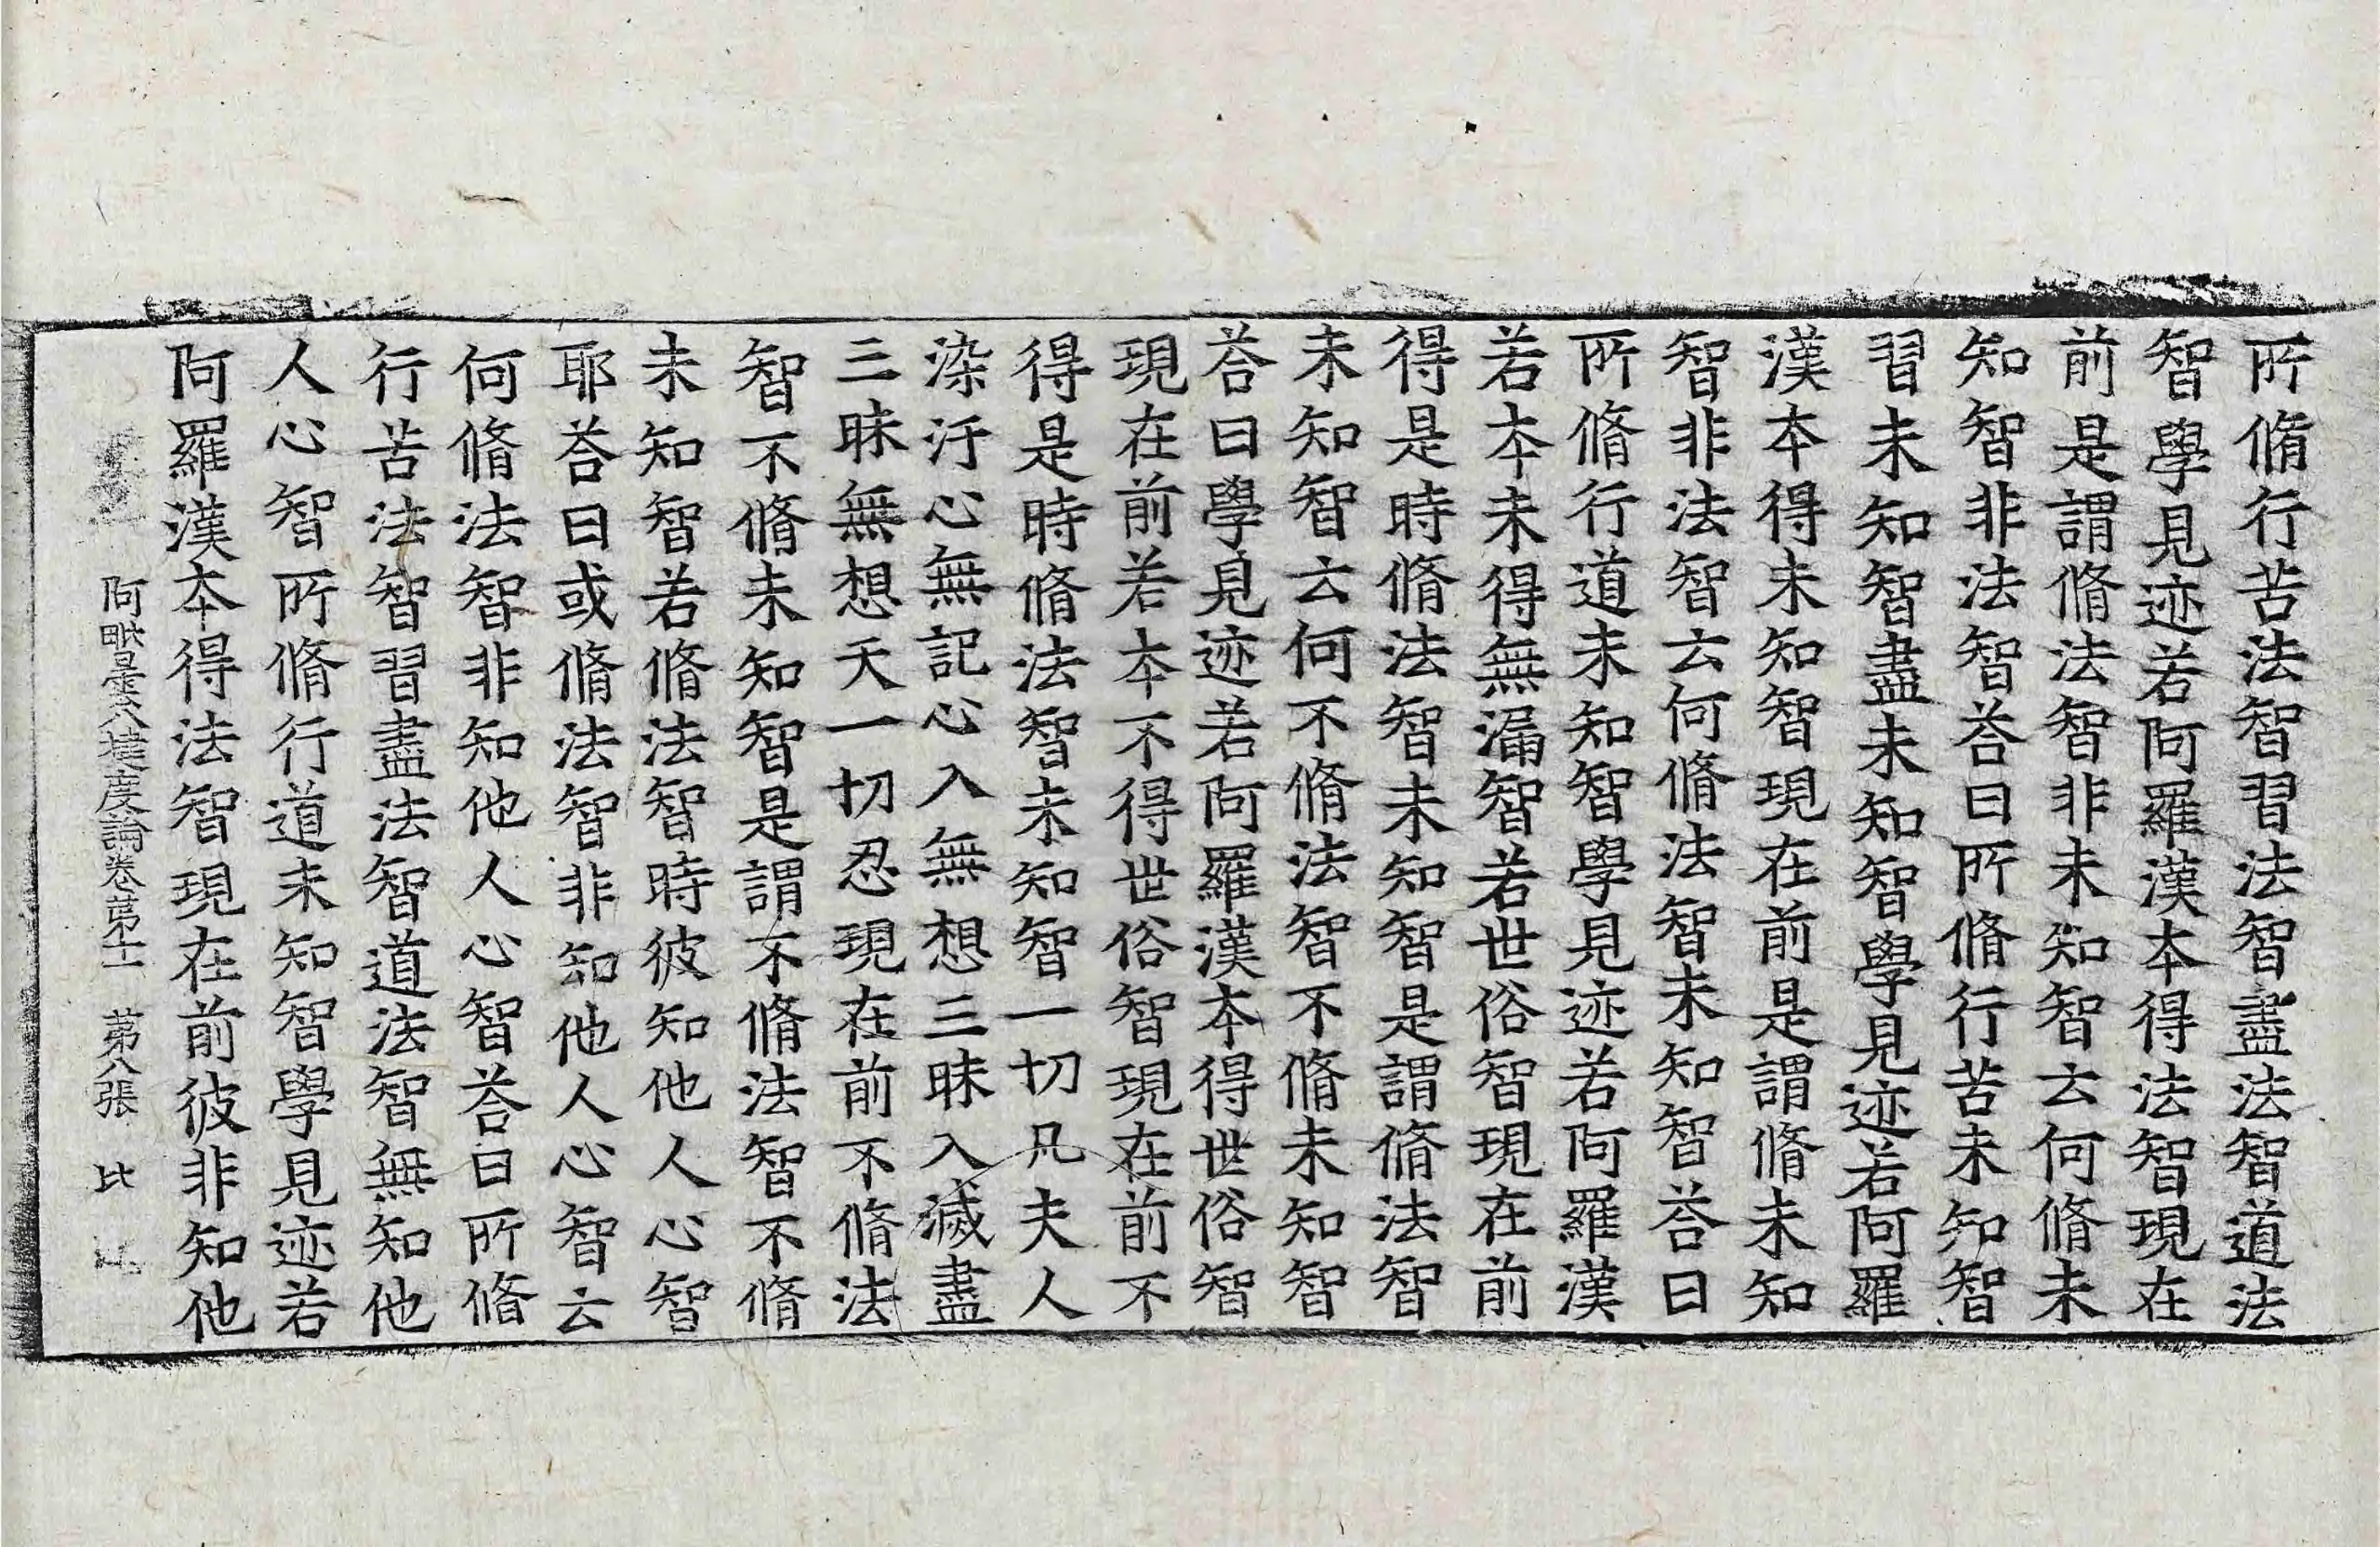 所脩行苦法智習法智盡法智道法
智學見迹若阿羅漢本得法智現在
前是謂脩法智非未知智云何脩未
知智非法智荅曰所脩行苦未知智
習未知智盡未知智學見迹若阿羅
漢本得未知智現在前是謂脩未知
智非法智云何脩法智未知智荅曰
所脩行道未知智學見迹若阿羅漢
若本未得無漏智若世俗智現在前
得是時脩法智未知智是謂脩法智
未知智云何不脩法智不脩未知智
荅曰學見迹若阿羅漢本得世俗智
現在前若本不得世俗智現在前不
得是時脩法智未知智一切凡夫人
染汙心無記心入無想三昧入滅盡
三昧無想天一切忍現在前不脩法
智不脩未知智是謂不脩法智不脩
未知智若脩法智時彼知他人心智
耶荅曰或脩法智非知他人心智云
何脩法智非知他人心智荅曰所脩
行苦法智習盡法智道法智無知他
人心智所脩行道未知智學見迹若
阿羅漢本得法智現在前彼非知他
阿毗曇八揵度論卷苐十一 苐八張 比